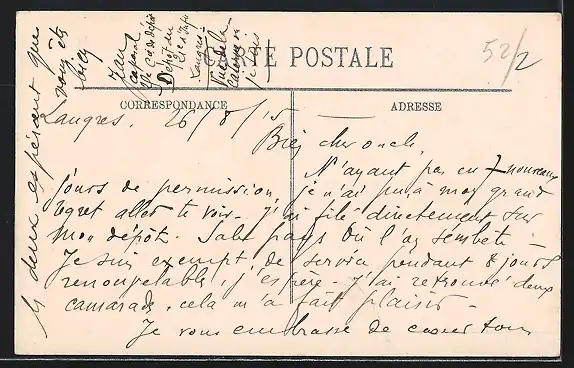 CARTE POSTALE
52/2
CORRESPONDANCE
ADRESSE
Langres. 26/8/15
Bien cher oncle.
N'ayant pas eu 7 nouveaux
jours de permission, je n'ai pu à mon grand
regret aller te voir. J'ai filé directement sur
mon dépôt. Sale pays où l'on s'embête.
Je suis exempt de service pendant 8 jours
renouvelable, j'espère. J'ai retrouvé deux
camarades. cela m'a fait plaisir.
Je vous embrasse de coeur tous
deux espérant que
vous êtes
bien
Jean
caporal
Dépôt du
Langres